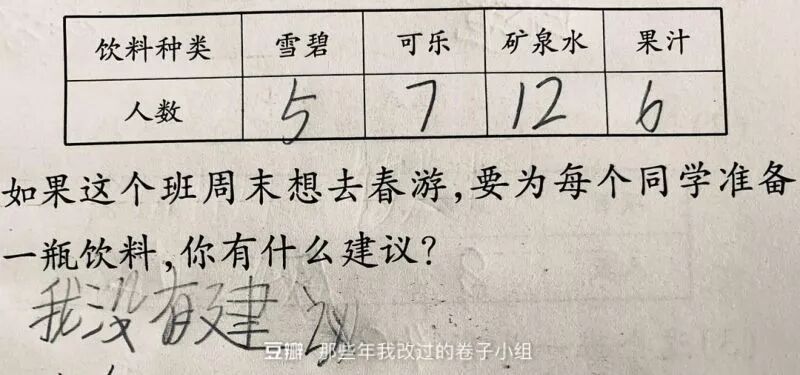 饮料种类 雪碧 可乐 矿泉水 果汁
人数 5 7 12 6
如果这个班周末想去春游,要为每个同学准备
一瓶饮料,你有什么建议?
我没有建议
豆瓣 那些年我改过的卷子小组